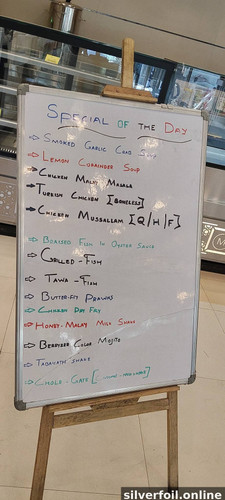 Special of the Day
Smoked Garlic Soup
Lemon Coriander Soup
Chicken Malai Masala
Turkish Chicken [Boneless]
Chicken Mussallam [Q/H/F]
Fish in Oyster Sauce
Grilled-Fish
Tawa-Fish
Butterfly Prawns
Chicken Dry Fry
Honey-Malay Milk Shake
Mojito
Shake
silverfoil.online